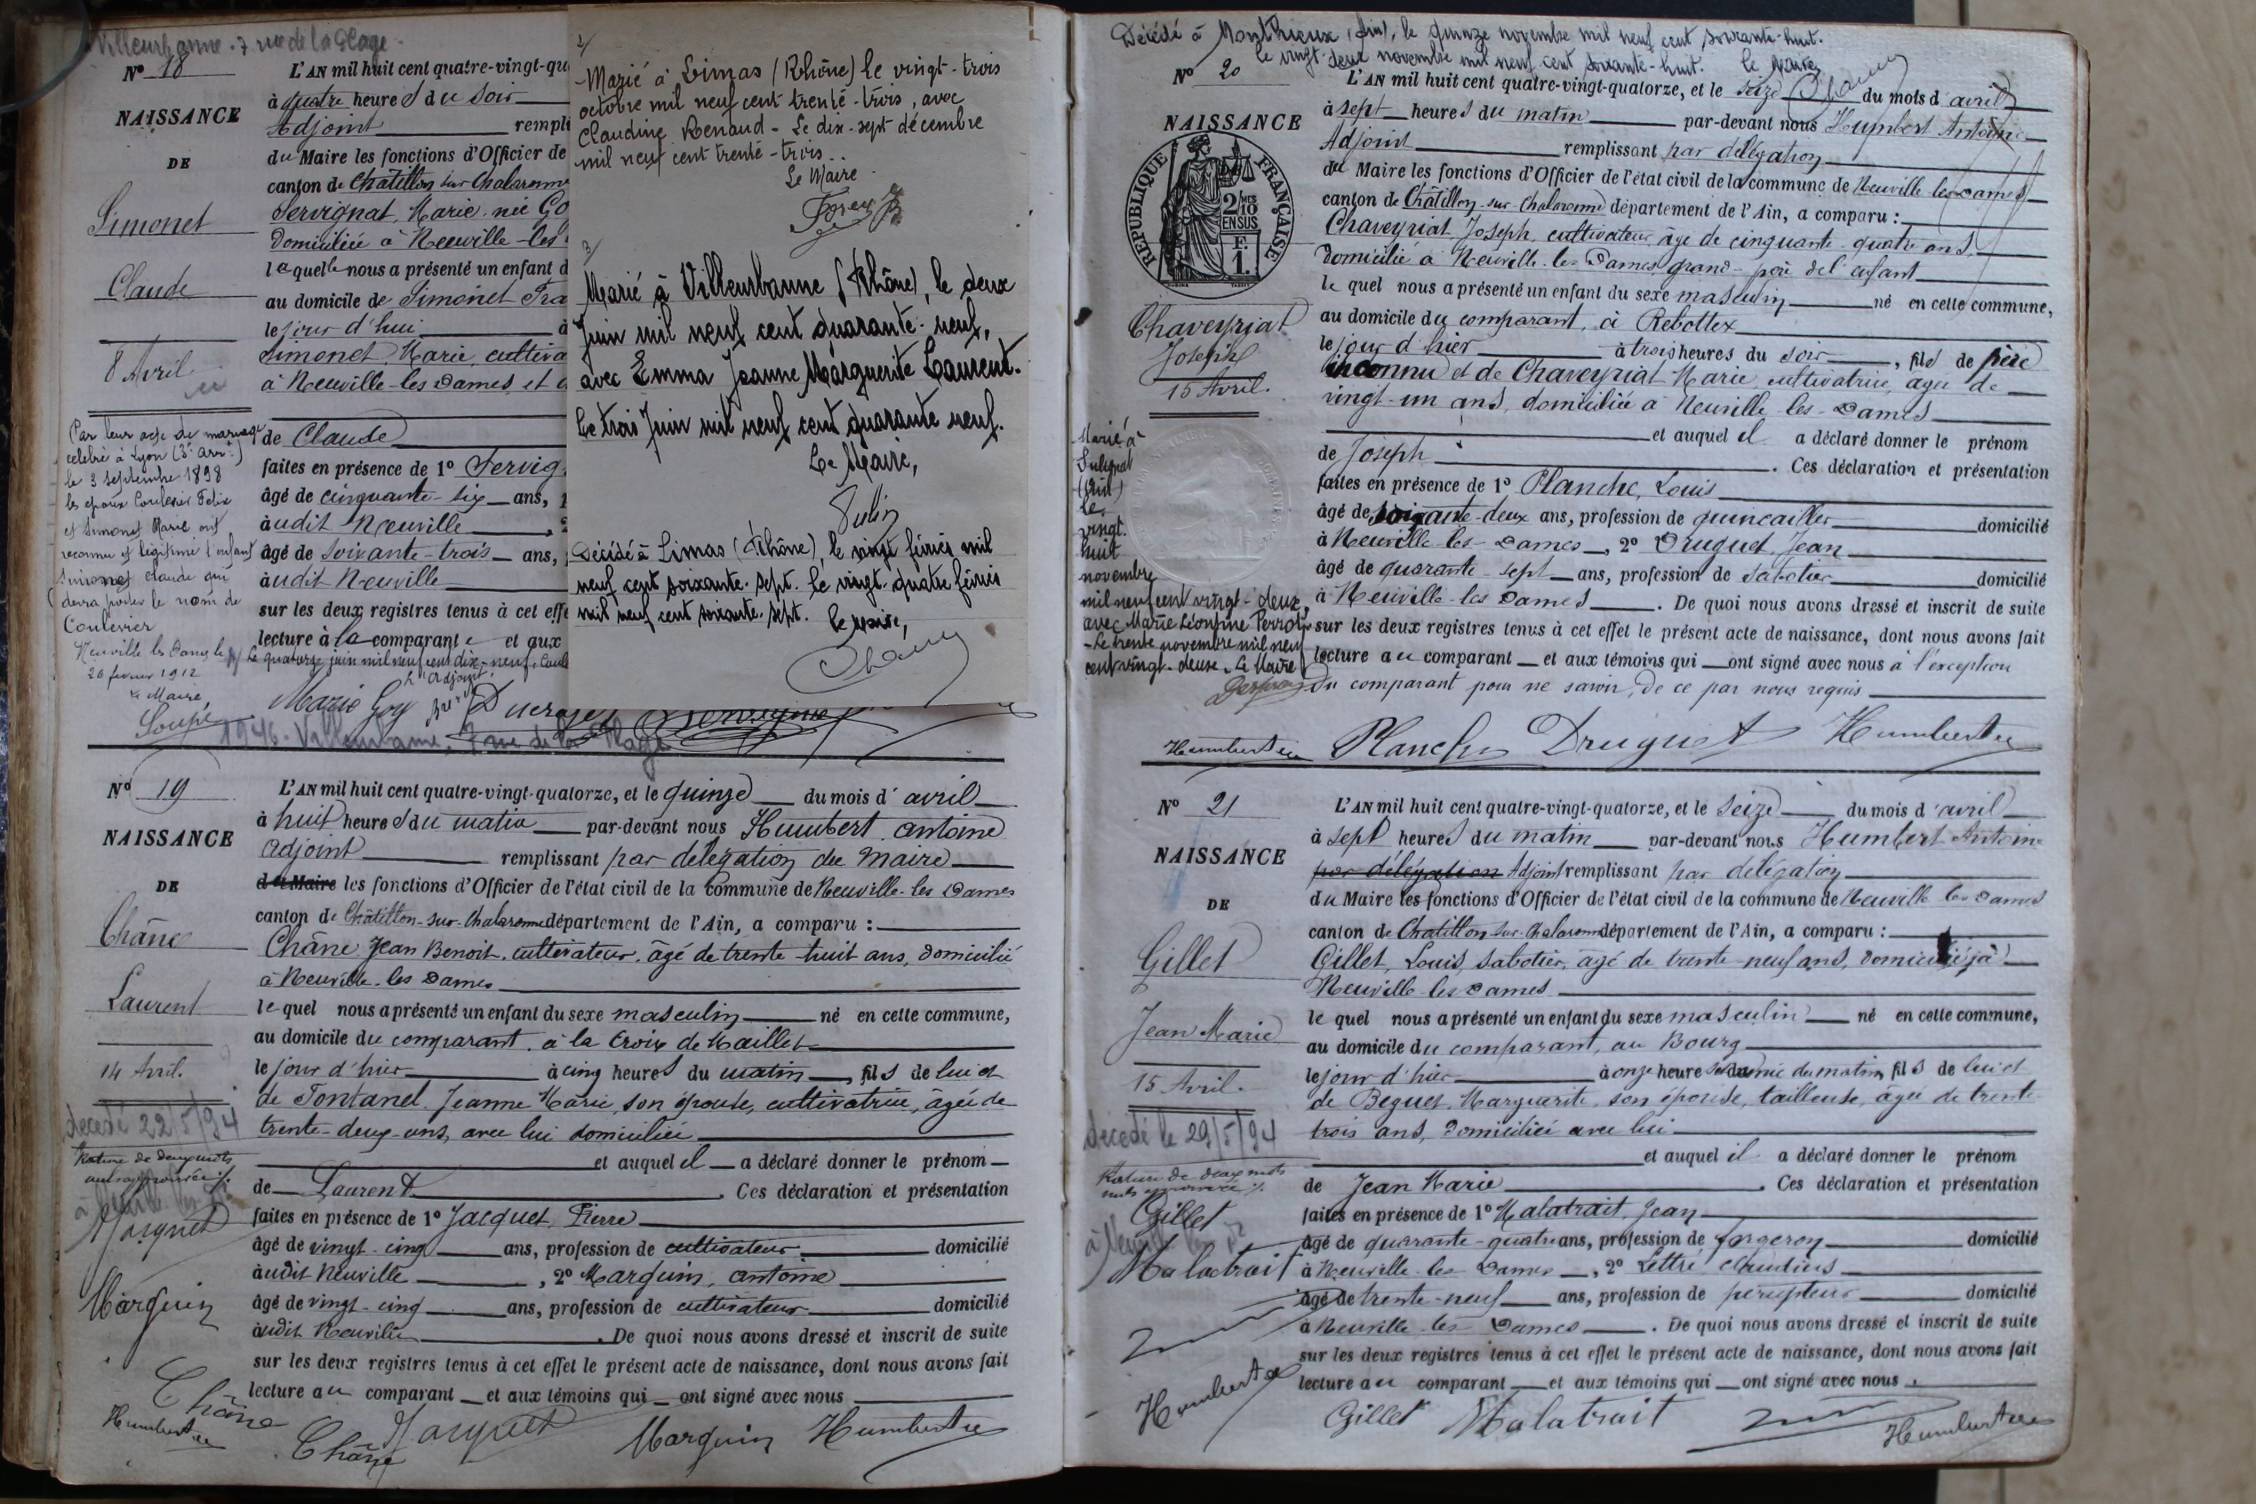 Villeurbanne. 7 rue de la Plage.
N° 18
NAISSANCE
DE
Simonet
Claude
8 Avril
Par leur acte de mariage
célébré à Lyon (3e arrt)
le 3 septembre 1898
les époux Coulevier Felix
et Simonet Marie ont
reconnu et légitimé l'enfant
Simonet Claude qui
devra porter le nom de
Coulevier
Neuville les Dames le
20 février 1912
Le Maire
L'AN mil huit cent quatre-vingt-qu
à quatre heures du soir
Adjoint rempli
du Maire les fonctions d'Officier de
canton de Châtillon sur Chalaronne
Servignat, Marie. née Go
domiciliée à Neuville-les
laquelle nous a présenté un enfant d
au domicile de Simonet Fra
le jour d'hui à
Simonet, Marie, cultiva
à Neuville-les Dames, et
de Claude
faites en présence de 1° Servig
âgé de cinquante-six ans,
àudit Neuville
âgé de soixante-trois ans,
àudit Neuville
sur les deux registres tenus à cet effe
lecture à la comparante et aux
Le quatorze juin mil neuf cent dix-neuf, Coul
L'adjoint
Marie Goy
1946. Villeurbanne. 7 rue de la Plage
2/
Marié à Limas (Rhône) le vingt-trois
octobre mil neuf cent trente-trois, avec
Claudine Renaud - Le dix-sept décembre
mil neuf cent trente-trois..
Le Maire.
3/
Marié à Villeurbanne (Rhône), le deux
Juin mil neuf cent quarante-neuf,
avec Emma Jeanne Marguerite Laurent.
Le trois Juin mil neuf cent quarante neuf.
Le Maire,
Décédé à Limas (Rhône), le vingt février mil
neuf cent soixante-sept. le vingt-quatre février
mil neuf cent soixante-sept. le maire,
N° 19
NAISSANCE
DE
Châne
Laurent
14 Avril.
décédé 22/5/94
Rature de deux mots
nuls approuvée ./.
Jacquet
Marguin
Châne
Humbert Ane
L'AN mil huit cent quatre-vingt-quatorze, et le quinze du mois d'avril
à huit heures du matin par-devant nous Humbert Antoine
adjoint remplissant par délégation du Maire
du Maire les fonctions d'Officier de l'état civil de la commune de Neuville-les Dames
canton de Châtillon-sur-Chalaronne département de l'Ain, a comparu :
Châne Jean Benoit, cultivateur, âgé de trente-huit ans, domicilié
à Neuville-les Dames
lequel nous a présenté un enfant du sexe masculin né en cette commune,
au domicile du comparant, à la Croix de Maillet
le jour d'hier à cinq heures du matin, fils de lui et
de Fontanel Jeanne Marie, son épouse, cultivatrice, âgée de
trente-deux ans, avec lui domiciliée
et auquel il a déclaré donner le prénom
de Laurent. Ces déclaration et présentation
faites en présence de 1° Jacquet, Pierre
âgé de vingt-cinq ans, profession de cultivateur domicilié
àudit Neuville, 2° Marguin, antoine
âgé de vingt-cinq ans, profession de cultivateur domicilié
àudit Neuville. De quoi nous avons dressé et inscrit de suite
sur les deux registres tenus à cet effet le présent acte de naissance, dont nous avons fait
lecture au comparant et aux témoins qui ont signé avec nous
Châne Jacquet Marguin Humbert Ane
Décédé à Monthieux (Ain), le quinze novembre mil neuf cent soixante-huit.
le vingt-deux novembre mil neuf cent soixante-huit. le Maire
N° 20
NAISSANCE
DE
RÉPUBLIQUE FRANÇAISE
2 MES 10
EN SUS
1 F.
Chaveyriat
Joseph
15 Avril.
Marié à
Sulignat
(Ain)
le
vingt-
huit
novembre
mil neuf cent vingt-deux,
avec Marie Léontine Perrot
- Le trente novembre mil neuf
cent vingt-deux. Le Maire
L'AN mil huit cent quatre-vingt-quatorze, et le seize du mois d'avril
à sept heures du matin par-devant nous Humbert Antoine
Adjoint remplissant par délégation
du Maire les fonctions d'Officier de l'état civil de la commune de Neuville-les-Dames
canton de Châtillon-sur-Chalaronne département de l'Ain, a comparu :
Chaveyriat Joseph, cultivateur, âgé de cinquante-quatre ans,
domicilié à Neuville-les-Dames grand-père de l'enfant
lequel nous a présenté un enfant du sexe masculin né en cette commune,
au domicile du comparant, à Rebottex
le jour d'hier à trois heures du soir, fils de père
inconnu et de Chaveyriat Marie, cultivatrice, âgée de
vingt-un ans, domiciliée à Neuville-les-Dames
et auquel il a déclaré donner le prénom
de Joseph. Ces déclaration et présentation
faites en présence de 1° Planche, Louis
âgé de soixante-deux ans, profession de quincailler domicilié
à Neuville-les-Dames, 2° Druguet, Jean
âgé de quarante-sept ans, profession de sabotier domicilié
à Neuville-les Dames. De quoi nous avons dressé et inscrit de suite
sur les deux registres tenus à cet effet le présent acte de naissance, dont nous avons fait
lecture au comparant et aux témoins qui ont signé avec nous à l'exception
du comparant pour ne savoir, de ce par nous requis
Humbert Ane Planche Druguet Humbert Ane
N° 21
NAISSANCE
DE
Gillet
Jean Marie
15 Avril.
décédé le 29/5/94
Rature de deux mots
nuls approuvée ./.
Gillet
Malatrait
Humbert Ane
L'AN mil huit cent quatre-vingt-quatorze, et le seize du mois d'avril
à sept heures du matin par-devant nous Humbert Antoine
par délégation Adjoint remplissant par délégation
du Maire les fonctions d'Officier de l'état civil de la commune de Neuville les Dames
canton de Châtillon-sur-Chalaronne département de l'Ain, a comparu :
Gillet, Louis, sabotier, âgé de trente-neuf ans, domicilié à
Neuville-les-Dames
lequel nous a présenté un enfant du sexe masculin né en cette commune,
au domicile du comparant, au Bourg
le jour d'hier à onze heures demie du matin, fils de lui et
de Beguet, Marguerite, son épouse, tailleuse, âgée de trente-
trois ans, domiciliée avec lui
et auquel il a déclaré donner le prénom
de Jean Marie. Ces déclaration et présentation
faites en présence de 1° Malatrait, Jean
âgé de quarante-quatre ans, profession de forgeron domicilié
à Neuville-les Dames, 2° Lettré
âgé de trente-neuf ans, profession de percepteur domicilié
à Neuville-les-Dames. De quoi nous avons dressé et inscrit de suite
sur les deux registres tenus à cet effet le présent acte de naissance, dont nous avons fait
lecture au comparant et aux témoins qui ont signé avec nous.
Gillet Malatrait Humbert Ane